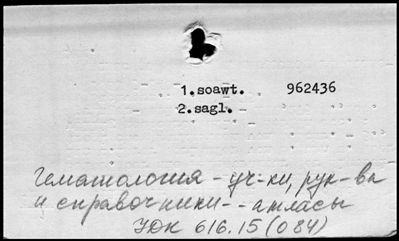 1.soawt. 962436
2.sagl.
Гематология - уч-ки, рук-ва
и справочники - атласы
УДК 616.15(084)